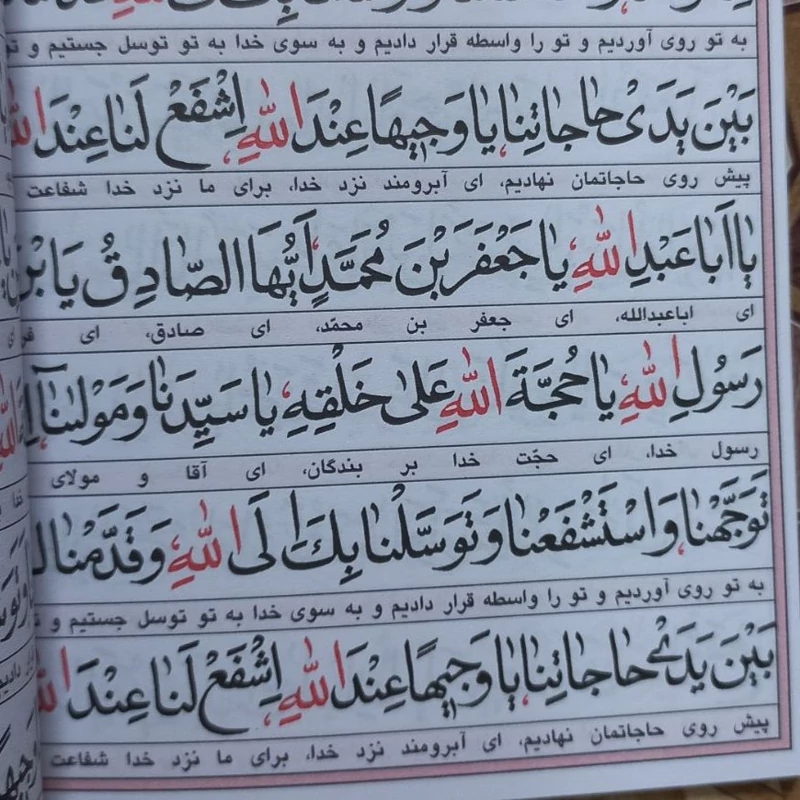 به تو روی آوردیم و تو را واسطه قرار دادیم و به سوی خدا به تو توسل جستیم و
بَيْنَ يَدَىْ حاجاتِنا يا وَجيهاً عِنْدَ اللهِ، اِشْفَعْ لَنا عِنْدَ
پیش روی حاجاتمان نهادیم، ای آبرومند نزد خدا، برای ما نزد خدا شفاعت
يا اَبا عَبْدِ اللهِ، يا جَعْفَرَ بْنَ مُحَمَّدٍ، اَيُّهَا الصّادِقُ يَا بْنَ
ای اباعبدالله، ای جعفر بن محمّد، ای صادق، ای
رَسُولِ اللهِ، يا حُجَّةَ اللهِ عَلىٰ خَلْقِهِ، يا سَيِّدَنا وَمَوْلينآ
رسول خدا، ای حجّت خدا بر بندگان، ای آقا و مولای
تَوَجَّهْنا، وَاسْتَشْفَعْنا وَتَوَسَّلْنا بِكَ اِلَى اللهِ، وَقَدَّمْناكَ
به تو روی آوردیم و تو را واسطه قرار دادیم و به سوی خدا به تو توسل جستیم و
بَيْنَ يَدَىْ حاجاتِنا، يا وَجيهاً عِنْدَ اللهِ، اِشْفَعْ لَنا عِنْدَ
پیش روی حاجاتمان نهادیم، ای آبرومند نزد خدا، برای ما نزد خدا شفاعت